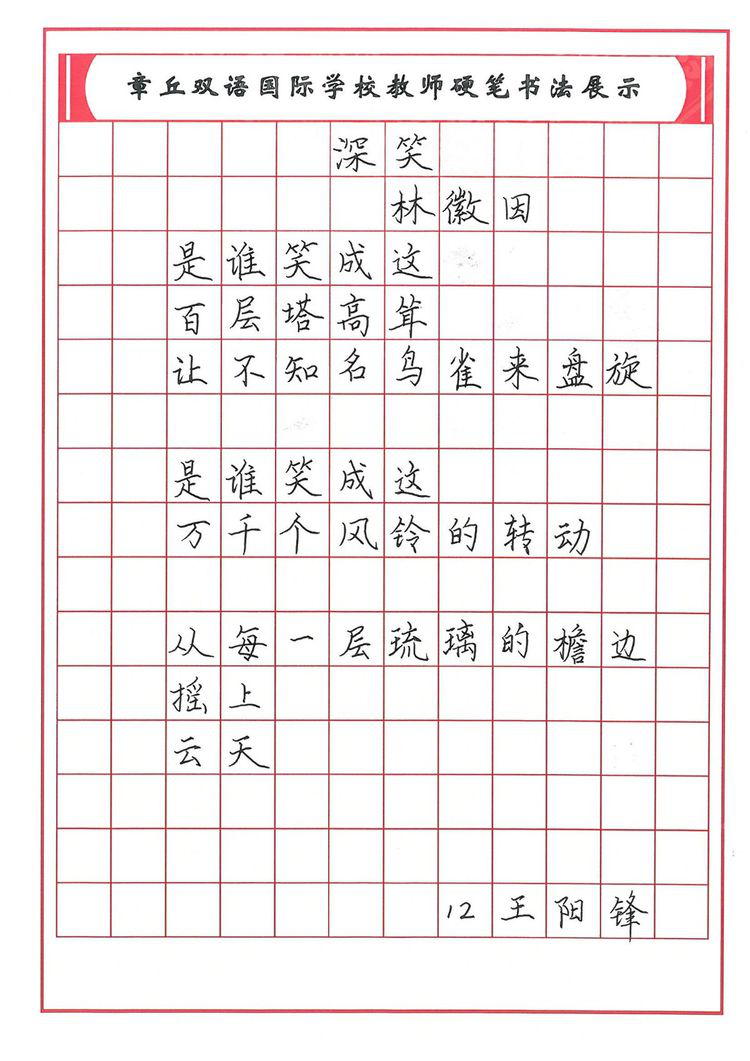 章丘双语国际学校教师硬笔书法展示
深笑
林徽因
是谁笑成这
百层塔高耸
让不知名鸟雀来盘旋
是谁笑成这
万千个风铃的转动
从每一层琉璃的檐边
摇上
云天
12王阳锋